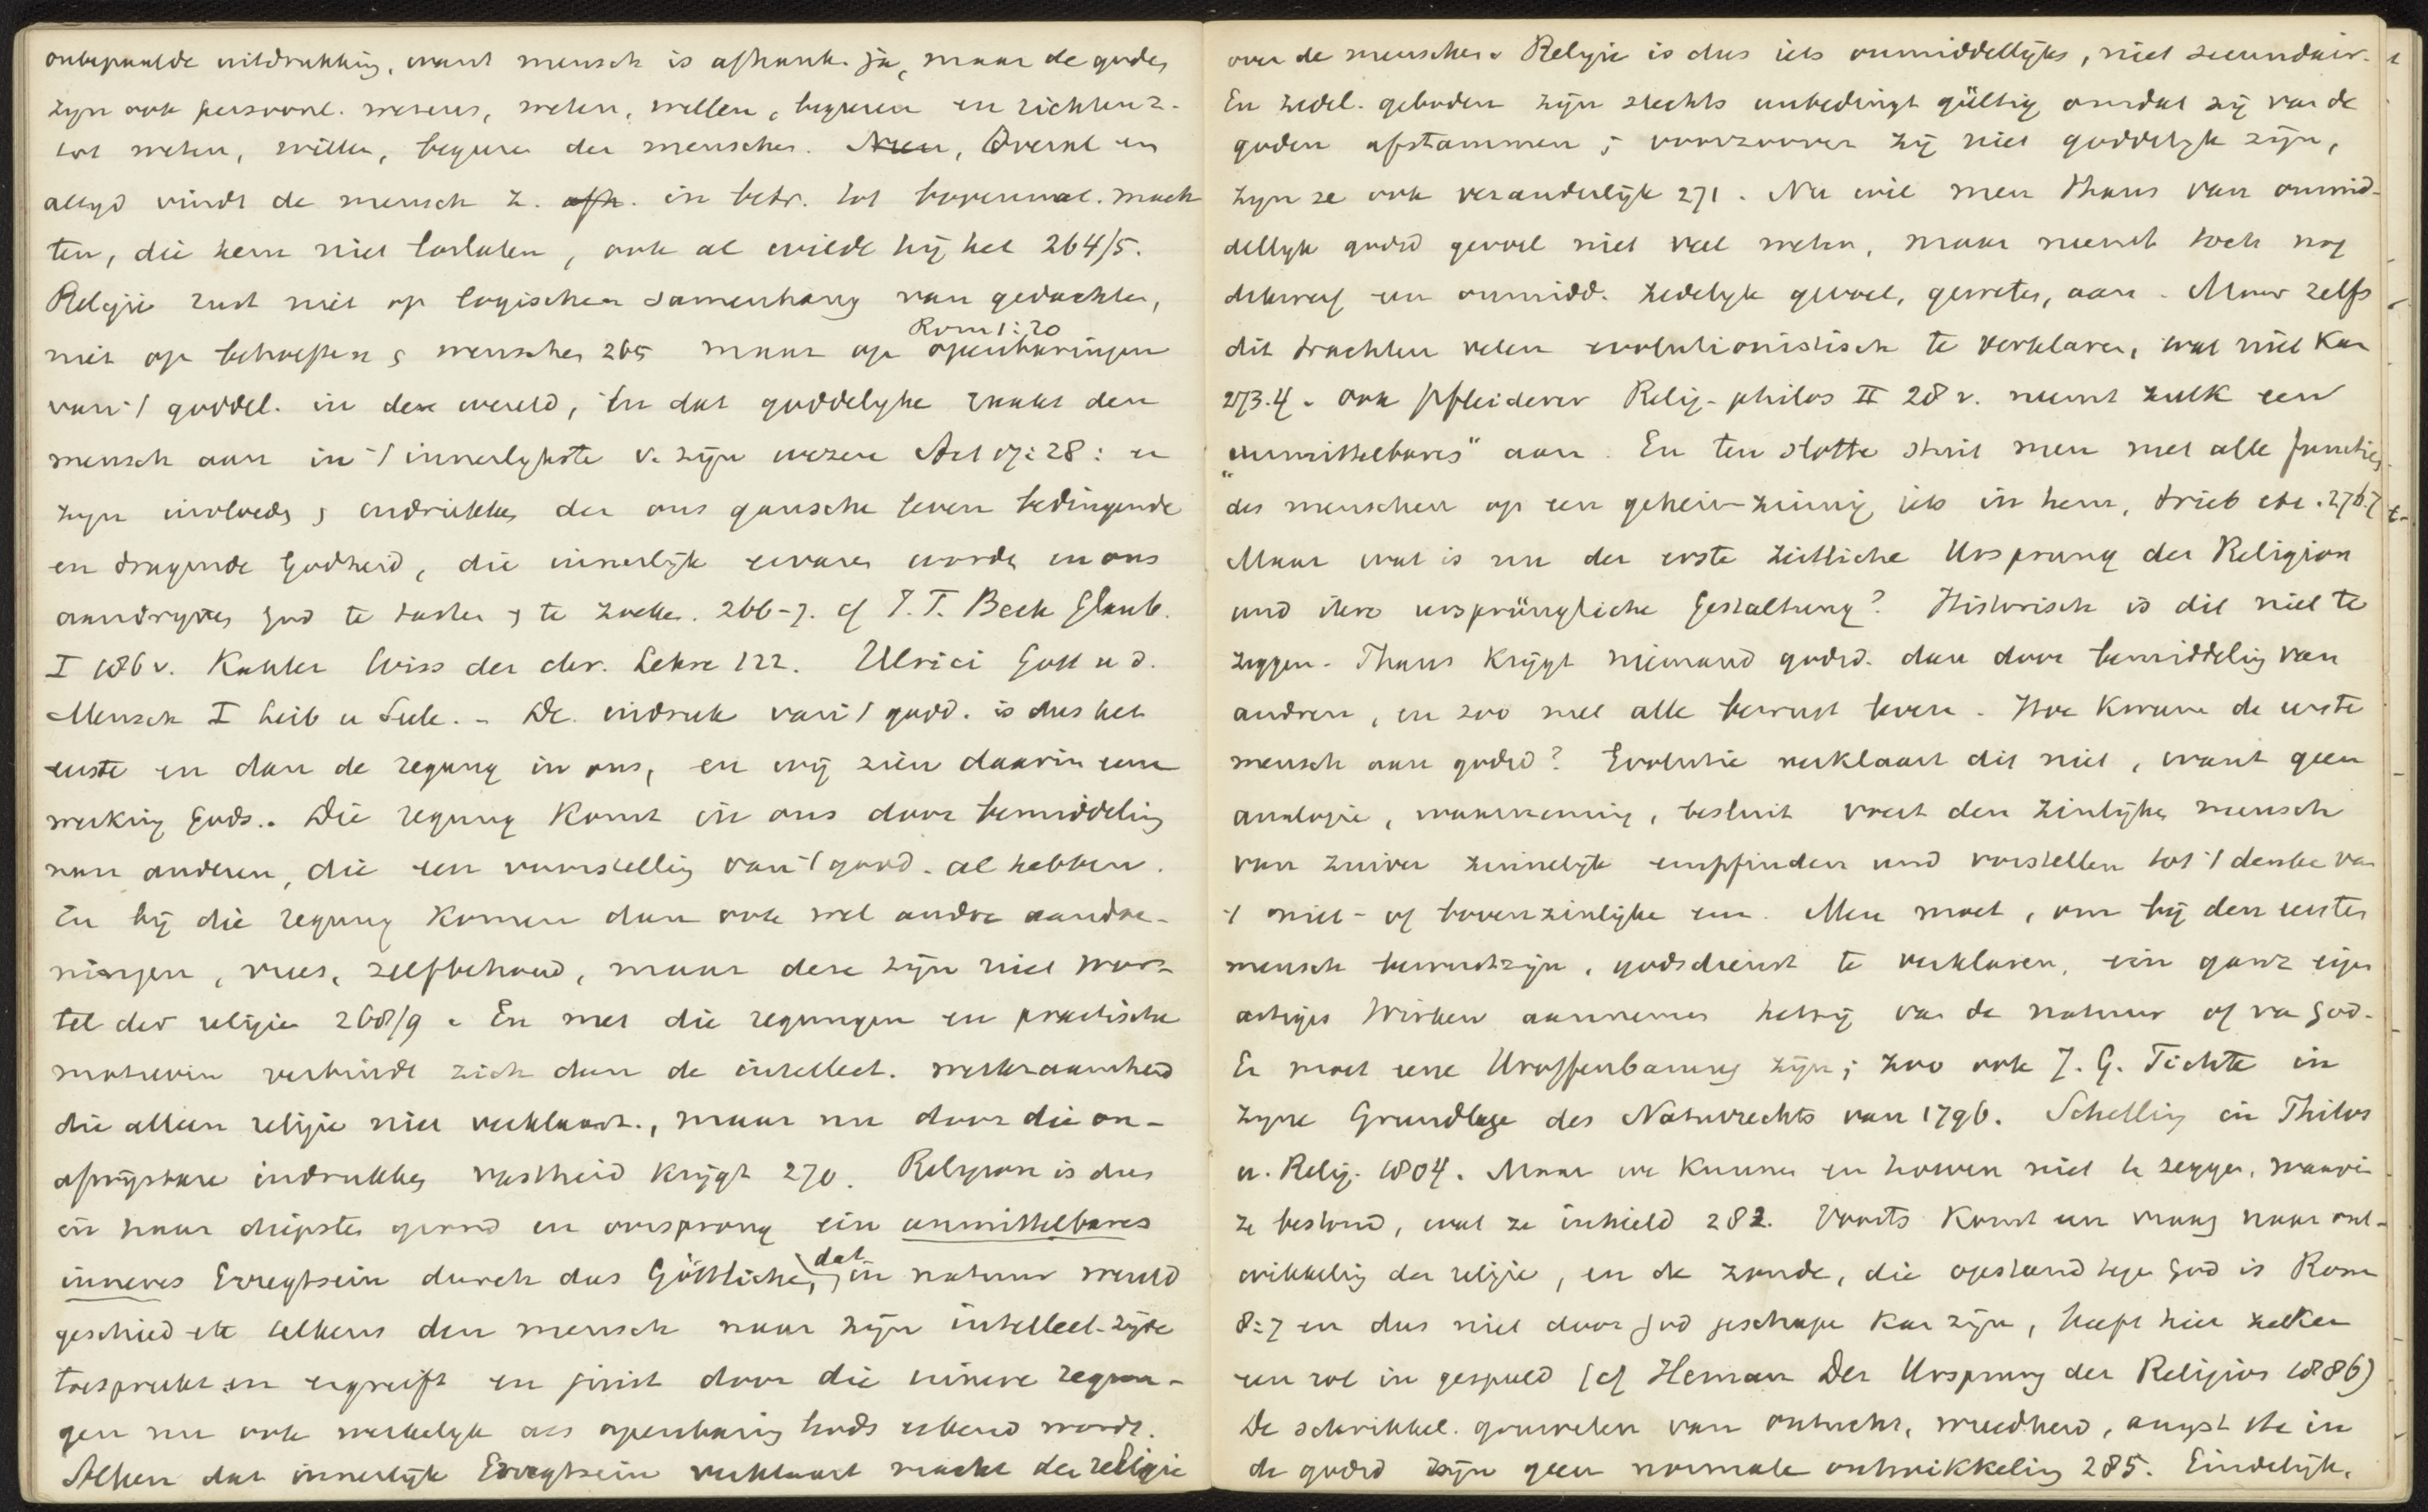 onbepaalde uitdrukking, want mensch is afhank. ja, maar de goden
zyn ook persoonl. wezens, weten, willen, begeeren en richten z.
tot weten, willen, begeeren der menschen. Neen, Overal en
altyd vindt de mensch z. afh. in betr. tot bovennat. mach
ten, die hem niet loslaten, ook al wilde hij het 264/5.
Religie rust niet op logischen samenhang van gedachten,
Rom 1:20
niet op behoeften menschen 265 maar op openbaringen
van 't goddel. in deze wereld, En dat goddelyke raakt den
mensch aan in 't innerlykste v. zijn wezen Act 17:28: er
zyn invloeden, indrukken der ons gansche leven bedingende
en dragende Godheid, die innerlijk ervaren worden en ons
aandryven God te tasten te zoeken. 266-7. cf J.T. Beck Glaub.
I 186 v. Kahler Wiss der chr. Lehre 122. Ulrici Gott u d.
Mensch I Leib u Seele. - De indruk van 't godd. is dus het
eerste en dan de regung in ons, en wij zien daarin eene
werking Gods. Die regung komt in ons door bemiddeling
van anderen, die een voorstelling van 't godd. al hebben.
En bij die regung komen dan ook wel andre aandoe-
ningen, vrees, zelfbehoud, maar deze zijn niet wor-
tel der religie 268/9. En met die regungen en practische
motieven verbindt zich dan de intellect. werkzaamheid
die alleen religie niet verklaart., maar nu door die on-
afwijsbare indrukken vastheid krijgt 270. Religion is dus
in haar diepsten grond en oorsprong ein unmittelbares
inneres Erregtsein durch das Göttliche, dat in natuur wereld
geschied etc telkens den mensch naar zijn intellect. zijde
toespreekt en ergreift en juist door die innere regun-
gen nu ook werkelyk als openbaring Gods erkend wordt.
Alleen dat innerlijk Erregtsein verklaart macht der religie
over de menschen. Religie is dus iets onmiddellijks, niet secundair.
En zedel. geboden zijn slechts unbedingt gültig omdat zij van de
goden afstammen; voorzoover zij niet goddelyk zijn,
zyn ze ook veranderlijk 271. Nu wil men thans van onmid-
dellyk godsd gevoel niet veel weten, maar neemt toch nog
dikwerf een onmidd. zedelyk gevoel, geweten, aan. Maar zelfs
dit trachten velen evolutionistisch te verklaren, wat niet kan
273.4. Ook Pfleiderer Relig-philos II 28 v. neemt zulk een
"unmittelbares" aan. En ten slotte stuit men met alle functies
des menschen op een geheimzinnig iets in hem, trieb etc. 276.7
Maar wat is nu der erste zeitliche Ursprung der Religion
und ihre ursprüngliche Gestaltung? Historisch is dit niet te
zeggen. Thans krijgt niemand godsd. dan door bemiddeling van
andren, en zoo met alle bewust leven. Hoe kwam de eerste
mensch aan godsd? Evolutie verklaart dit niet, want geen
analogie, waarneming, besluit voert den zinlijken mensch
van zuiver zinnelijk empfinden und vorstellen tot 't denken van
't niet- of bovenzinlijke een. Men moet, om bij den eersten
mensch bewustzijn, godsdienst te verklaren, ein ganz eigen
artiges Wirken aannemen hetzij van de natuur of van God.
Er moet eene Uroffenbarung zijn; zoo ook J. G. Fichte in
zyne Grundlage des Naturrechts van 1796. Schelling in Philos
u. Relig. 1804. Maar we kunnen en hoeven niet te zeggen, waarin
ze bestond, wat ze inhield 282. Voorts komt een vraag naar ont-
wikkeling der religie, en de zonde, die opstand tegen God is Rom
8:7 en dus niet door God geschapen kan zijn, heeft hier zeker
een rol in gespeeld (cf Heman Der Ursprung der Religion 1886)
De schrikkel. gruwelen van ontucht, wreedheid, angst etc in
de godsd zijn geen normale ontwikkeling 285. Eindelijk,